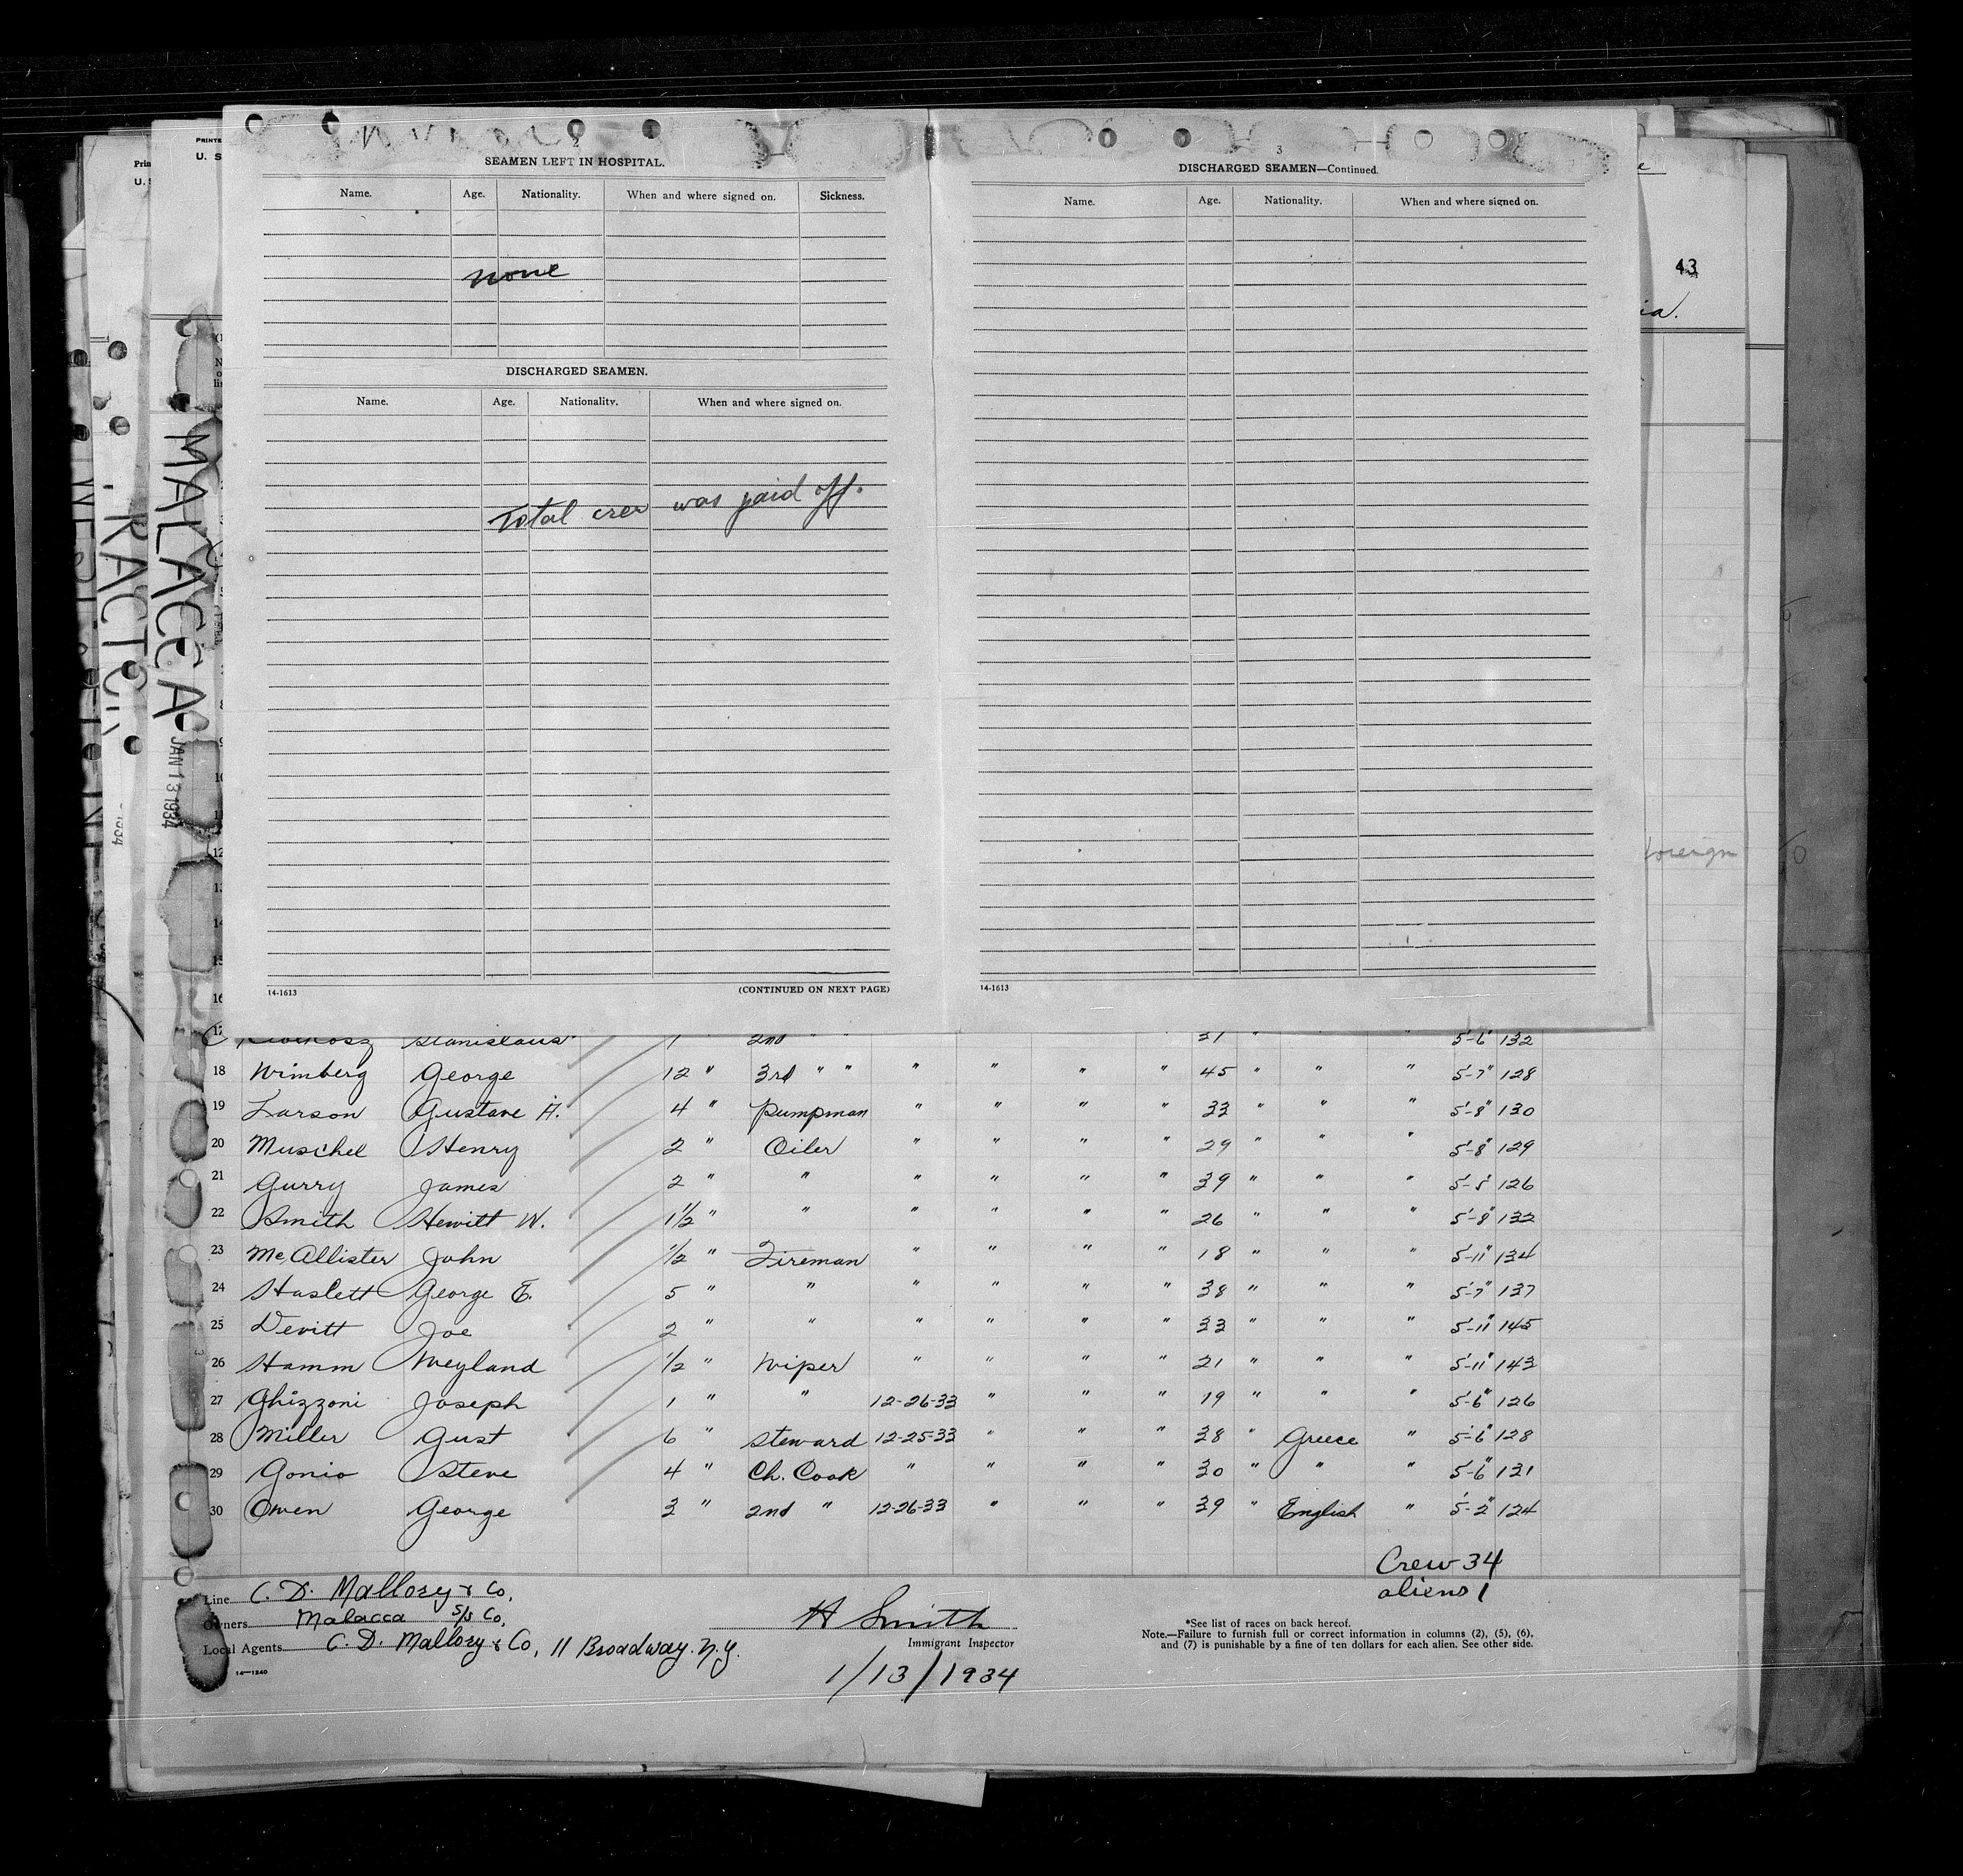 2
SEAMEN LEFT IN HOSPITAL.
Name. Age. Nationality. When and where signed on. Sickness.
none
DISCHARGED SEAMEN.
Name. Age. Nationality. When and where signed on.
Total crew was paid off.
14-1613 (CONTINUED ON NEXT PAGE)
3
DISCHARGED SEAMEN—Continued.
Name. Age. Nationality. When and where signed on.
14-1613
43
ia.
foreign
PRINTE
U. S
Prin
U. S
MALACCA
JAN 13 1934
17 Stanislaus 1 " 2nd " " 31 " " " 5'-6" 132
18 Wimberg George 12 " 3rd " " " " " " 45 " " " 5'-7" 128
19 Larson Gustave H. 4 " Pumpman " " " " 33 " " " 5'-8" 130
20 Muschel Henry 2 " Oiler " " " " 29 " " " 5'-8" 129
21 Gurry James 2 " " " " " " 39 " " " 5'-5" 126
22 Smith Hewitt W. 1½ " " " " " " 26 " " " 5'-8" 132
23 McAllister John ½ " Fireman " " " " 18 " " " 5'-11" 134
24 Haslett George E. 5 " " " " " " 38 " " " 5'-7" 137
25 Devitt Joe 2 " " " " " " 33 " " " 5'-11" 145
26 Hamm Weyland ½ " Wiper " " " " 21 " " " 5'-11" 143
27 Ghizzoni Joseph 1 " " 12-26-33 " " " 19 " " " 5'-6" 126
28 Miller Gust 6 " Steward 12-25-33 " " " 38 " Greece " 5'-6" 128
29 Gonio Steve 4 " Ch. Cook " " " " 30 " " " 5'-6" 131
30 Owen George 3 " 2nd " 12-26-33 " " " 39 " English " 5'-2" 124
Crew 34
aliens 1
Line C. D. Mallory & Co.
Owners Malacca S/S Co.
Local Agents C. D. Mallory & Co, 11 Broadway. N.Y.
14—1240
H Smith
Immigrant Inspector
1/13/1934
*See list of races on back hereof.
Note.—Failure to furnish full or correct information in columns (2), (5), (6),
and (7) is punishable by a fine of ten dollars for each alien. See other side.